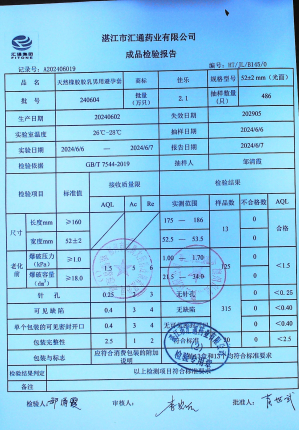 汇通集团
FITONE
湛江市汇通药业有限公司
成品检验报告
记录号: A202406019
编号: HT/JL/B145/0
品 名 天然橡胶胶乳男用避孕套 商标 佳乐 规格型号 52±2 mm (光面)
批 号 240604 批量(万只) 2.1 抽样数量(只) 486
生产日期 20240602 失效日期 202905
实验室温度 26℃-28℃ 抽样日期 2024/6/6
实验日期 2024/6/6 — 2024/6/7 报告日期 2024/6/7
检验依据 GB/T 7544-2019 抽样人 邹清霞
检验项目 标准值 接收质量限 检验结果
AQL Ac Re 实测范围 样品数 不合格数 AQL
尺寸 长度mm ≥160 175 — 186 13 0 合格
宽度mm 52±2 52.5 — 53.5 0
老化前 爆破压力(kPa) ≥1.0 1.5 5 6 1.00 — 1.70 125 0 <1.5
爆破容量(dm³) ≥18.0 21.5 — 34.0 0
针 孔 0.25 2 3 无针孔 315 0 <0.25
可见缺陷 0.4 3 4 无缺陷 0 <0.40
单个包装的可见密封开口 0.4 3 4 0 <0.40
包装完整性 2.5 1 2 符合标准 0 <2.5
包装与标志 应符合消费包装的附加说明 均符合标准要求
检验结果判定 以上检测项目符合标准要求
备注
检验人: 审核人: 批准人:
检验专用章
(2)